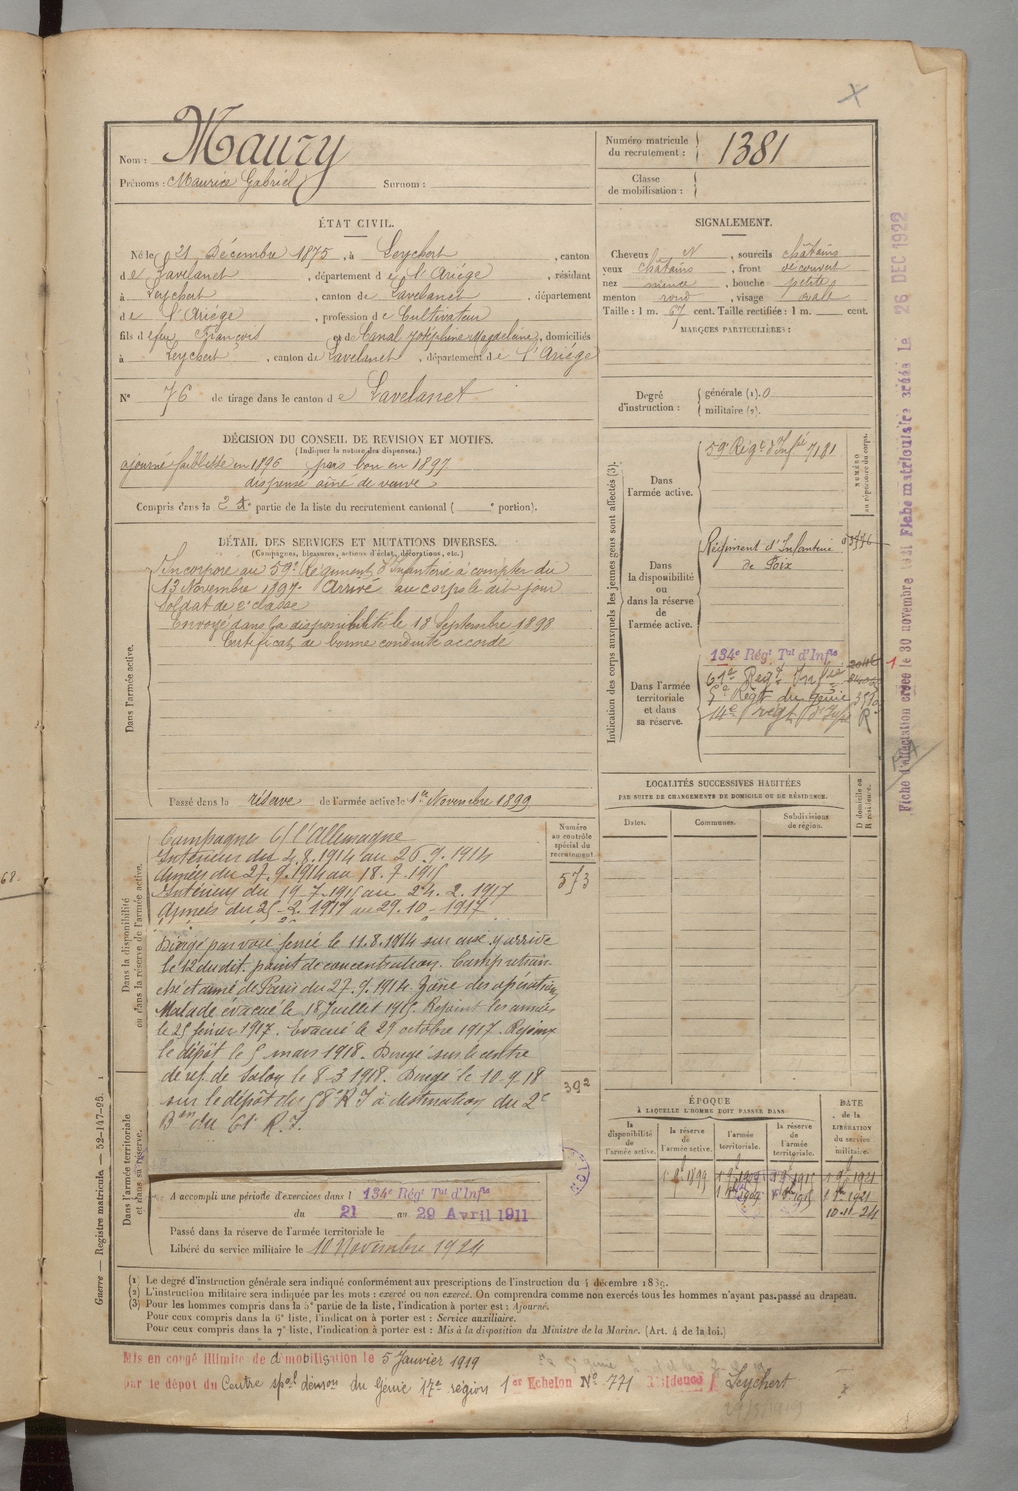 Nom : Maury
Prénoms : Maurice Gabriel Surnom :
Numéro matricule du recrutement : 1381
Classe de mobilisation :
ÉTAT CIVIL.
Né le 21 Décembre 1875, à Leychert, canton
de Lavelanet, département de l'Ariége, résidant
à Leychert, canton de Lavelanet, département
de l'Ariége, profession de Cultivateur
fils de feu François et de Canal Joséphine Magdeleine, domiciliés
à Leychert, canton de Lavelanet, département de l'Ariége
N° 76 de tirage dans le canton de Lavelanet
SIGNALEMENT.
Cheveux N, sourcils châtains
yeux châtains, front découvert
nez mince, bouche petite
menton rond, visage ovale
Taille : 1 m. 67 cent. Taille rectifiée : 1 m. cent.
MARQUES PARTICULIÈRES :
Degré d'instruction : générale (1). 0
militaire (2).
DÉCISION DU CONSEIL DE REVISION ET MOTIFS.
(Indiquer la nature des dispenses.)
ajourné faiblesse en 1896 puis bon en 1897
dispensé aîné de veuve
Compris dans la 2e partie de la liste du recrutement cantonal ( e portion).
DÉTAIL DES SERVICES ET MUTATIONS DIVERSES.
(Campagnes, blessures, actions d'éclat, décorations, etc.)
Dans l'armée active.
Incorporé au 59e Régiment d'Infanterie à compter du
13 Novembre 1897. Arrivé au corps le dit jour
Soldat de 2e classe
Envoyé dans la disponibilité le 18 Septembre 1898
Certificat de bonne conduite accordé
Passé dans la réserve de l'armée active le 1er Novembre 1899
Indication des corps auxquels les jeunes gens sont affectés (3).
NUMÉRO au répertoire du corps.
Dans l'armée active.
59e Régt d'Infie 7181
Dans la disponibilité ou dans la réserve de l'armée active.
Régiment d'Infanterie
de Foix
Dans l'armée territoriale et dans sa réserve.
134e Régt Tal d'Infie
61e Régt Infie
Régt du Génie
14e régt d'Infie R
LOCALITÉS SUCCESSIVES HABITÉES
PAR SUITE DE CHANGEMENTS DE DOMICILE OU DE RÉSIDENCE.
Dates. Communes. Subdivisions de région.
D domicile ou R résidence.
Dans la disponibilité ou dans la réserve de l'armée active.
Numéro au contrôle spécial du recrutement
573
Campagne c/ l'Allemagne
Intérieur du 4.8.1914 au 26.9.1914
Armées du 27.9.1914 au 18.7.1915
Intérieur du 19.7.1915 au 24.2.1917
Armées du 25-2.1917 au 29.10-1917
Dirigé par voie ferrée le 11.8.1914 sur aux y arrive
le 12 du dit. point de concentration. Camp retran-
ché et armé de Paris du 27.9.1914. Zône des opérations
Malade évacué le 18 Juillet 1915. Rejoint les armées
le 25 février 1917. Evacué le 29 octobre 1917. Rejoint
le dépôt le 5 mars 1918. Dirigé sur le centre
de ref. de Salon le 8-3 1918. Dirigé le 10-9 18
sur le dépôt du 58e R I à destination du 2e
Bon du 61e R.I.
392
Dans l'armée territoriale et dans sa réserve.
A accompli une période d'exercices dans l 134e Régt Tal d'Infie
du 21 au 29 Avril 1911
Passé dans la réserve de l'armée territoriale le
Libéré du service militaire le 10 Novembre 1924
ÉPOQUE
À LAQUELLE L'HOMME DOIT PASSER DANS
la disponibilité de l'armée active.
la réserve de l'armée active.
l'armée territoriale.
la réserve de l'armée territoriale.
DATE de la LIBÉRATION du service militaire.
10-11-24
(1) Le degré d'instruction générale sera indiqué conformément aux prescriptions de l'instruction du 4 décembre 1889.
(2) L'instruction militaire sera indiquée par les mots : exercé ou non exercé. On comprendra comme non exercés tous les hommes n'ayant pas passé au drapeau.
(3) Pour les hommes compris dans la 5e partie de la liste, l'indication à porter est : Ajourné.
Pour ceux compris dans la 6e liste, l'indication à porter est : Service auxiliaire.
Pour ceux compris dans la 7e liste, l'indication à porter est : Mis à la disposition du Ministre de la Marine. (Art. 4 de la loi.)
Mis en congé illimité de démobilisation le 5 Janvier 1919
par le dépôt du Centre spal démon du Génie 17e région 1er Echelon N° 771 Résidence Leychert
Guerre — Registre matricule — 52-147-95.
Fiche d'affectation créée le 30 novembre
Fiche matriculaire créée le 26 DEC 1922
68.